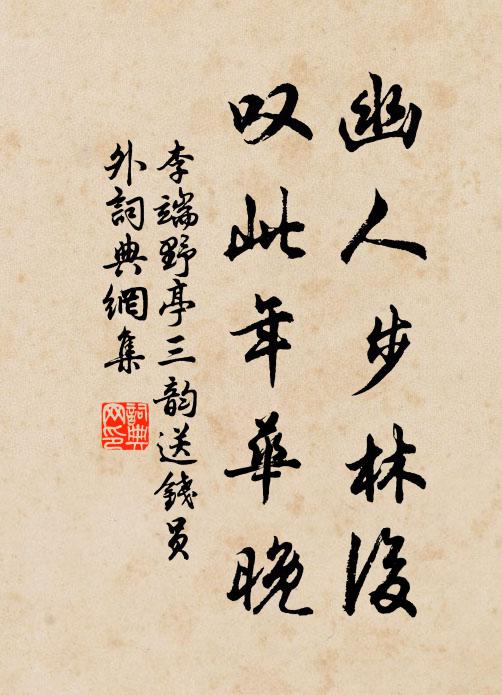 幽人步林後
叹此年華晚
李端野亭三韵送錢員
外詞典網集
詞典
网印